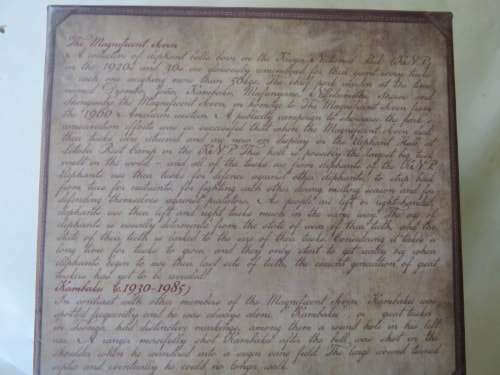 The Magnificent Seven
A collection of elephant bulls born in the Kruger National Park (KNP)
in the 1920s and 30s are gloriously remembered for their giant ivory tusks
each one weighing more than 50kgs. The chief park warden at the time
named Dzombo, João, Kambaku, Mafunyane, Ndlulamithi, Shawu and
Shingwedzi the Magnificent Seven in homage to The Magnificent Seven from
the 1960 American western. A publicity campaign to showcase the park's
conservation efforts was so successful that when the Magnificent Seven died
their tusks were retained and are now on display in the Elephant Hall at
Letaba Rest Camp in the KNP. This hall is possibly the largest by tusk
in the world - and all of the tusks are from elephants of the KNP.
Elephants use their tusks for defence against other elephants, to strip bark
from trees for nutrients, for fighting with other during mating season and for
defending themselves against predators. As people are left or right-handed,
elephants use their left and right tusks much in the same way. The age of
elephants is usually determined from the state of wear of their teeth and the
state of their teeth is linked to the size of their tusks. Considering it takes a
long time for tusks to grow and they only start to get really big when
elephants begin to use their last sets of teeth, the current generation of great
tuskers has yet to be revealed.
Kambaku (c.1930-1985)
In contrast with other members of the Magnificent Seven Kambaku was
spotted frequently and he was always alone. Kambaku, or great tusker
in Tsonga, had distinctive markings, among them a round hole in his left
ear. A ranger mercifully shot Kambaku after the bull was shot in the
shoulder when he wandered into a sugar cane field. The large wound turned
septic and eventually he could no longer walk.